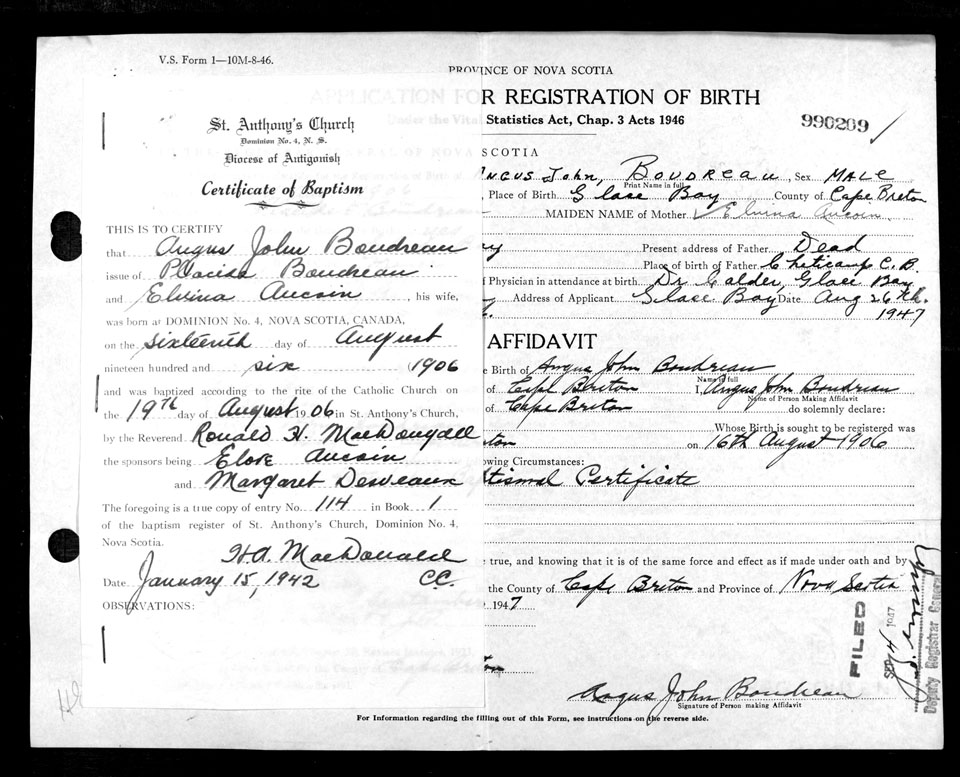 V.S. Form 1—10M-8-46.
PROVINCE OF NOVA SCOTIA
APPLICATION FOR REGISTRATION OF BIRTH
Statistics Act, Chap. 3 Acts 1946
990209
St. Anthony's Church
Dominion No. 4, N. S.
Diocese of Antigonish
Certificate of Baptism
THIS IS TO CERTIFY
that Angus John Boudreau
issue of Placide Boudreau
and Elvina Aucoin, his wife,
was born at DOMINION No. 4, NOVA SCOTIA, CANADA,
on the sixteenth day of August
nineteen hundred and six 1906
and was baptized according to the rite of the Catholic Church on
the 19th day of August 1906 in St. Anthony's Church,
by the Reverend Ronald H. MacDougall
the sponsors being Aucoin
and Margaret Desveaux
The foregoing is a true copy of entry No. 114 in Book 1
of the baptism register of St. Anthony's Church, Dominion No. 4,
Nova Scotia.
H.A. MacDonald
Date January 15, 1942 CC.
OBSERVATIONS:
SCOTIA
Angus John, Boudreau, Sex Male
Print Name in full
Place of Birth Glace Bay County of Cape Breton
MAIDEN NAME of Mother Elvina Aucoin
Present address of Father Dead
Place of birth of Father Cheticamp C.B.
Physician in attendance at birth Dr Calder, Glace Bay
Address of Applicant Glace Bay Date Aug 26th.
1947
AFFIDAVIT
Birth of Angus John Boudreau
Name in full
of Cape Breton I, Angus John Boudreau
Name of Person Making Affidavit
of Cape Breton do solemnly declare:
Whose Birth is sought to be registered was
on 16th August 1906
owing Circumstances:
tismal Certificate
true, and knowing that it is of the same force and effect as if made under oath and by
the County of Cape Breton and Province of Nova Scotia
1947
FILED
SEP 4 1947
Deputy Registrar General
Angus John Boudreau
Signature of Person making Affidavit
For Information regarding the filling out of this Form, see instructions on the reverse side.